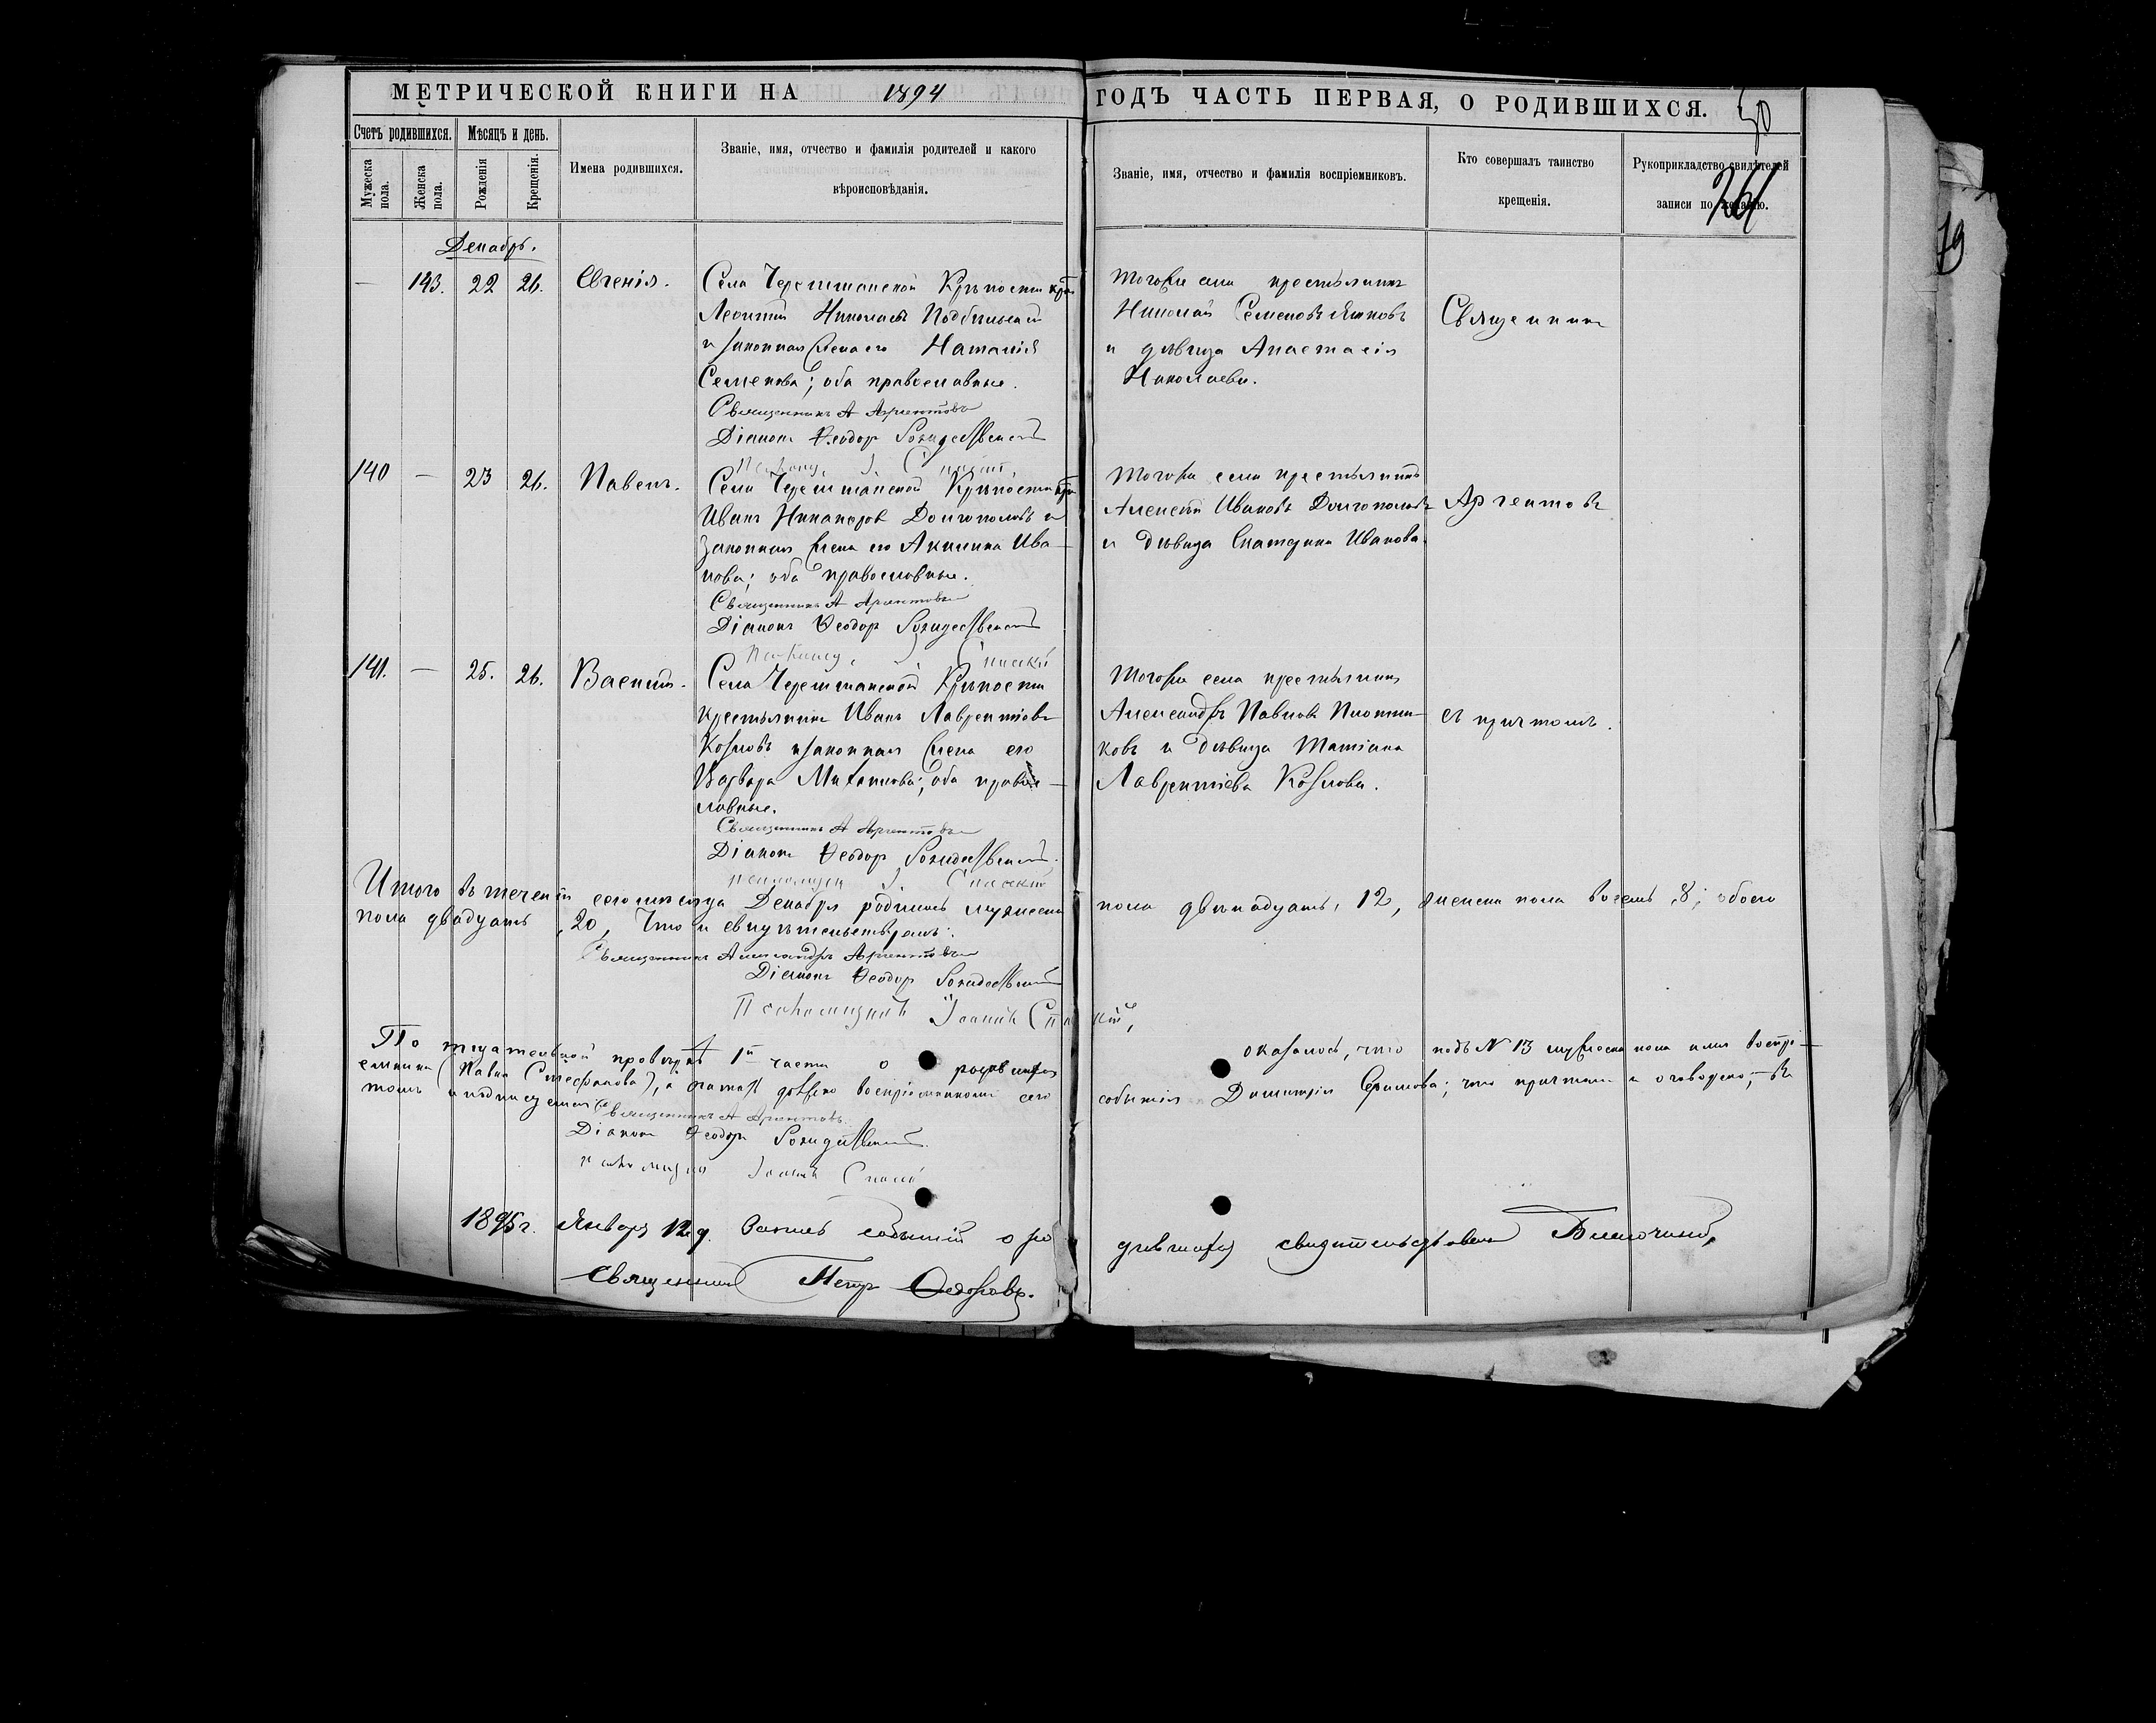 МЕТРИЧЕСКОЙ КНИГИ НА 1894 ГОДЪ ЧАСТЬ ПЕРВАЯ, О РОДИВШИХСЯ.
50
Счетъ родившихся.
Мужеска пола.
Женска пола.
Мѣсяцъ и день.
Рожденія
Крещенія.
Имена родившихся.
Званіе, имя, отчество и фамилія родителей и какого
вѣроисповѣданія.
Званіе, имя, отчество и фамилія воспріемниковъ.
Кто совершалъ таинство
крещенія.
Рукоприкладство свидѣтелей
записи по желанію.
19
Декабрь.
— 143. 22 26. Евгенія.
Села Черемшанской Крѣпости
Леонтій Николаевъ
и законная жена его Наталія
Семенова; обa православные.
Священникъ А Аргентовъ
Діаконъ Ѳеодоръ Рождественскій
Тогоже села крестьянинъ
Николай Семеновъ
и дѣвица Анастасія
Николаева.
Священникъ
140 — 23 26. Павелъ.
Села Черемшанской Крѣпости
Иванъ Никаноровъ Долгополовъ и
законная жена его Акилина Ива-
нова; оба православные.
Священникъ А Аргентовъ
Діаконъ Ѳеодоръ Рождественскій
Тогоже села крестьянинъ
Алексѣй Ивановъ Долгополовъ
и дѣвица Екатерина Иванова.
Аргентовъ
141. — 25. 26. Василій.
Села Черемшанской Крѣпости
крестьянинъ Иванъ Лаврентіевъ
Козловъ и законная жена его
Варвара Михаилова; оба правос-
лавные.
Священникъ А Аргентовъ
Діаконъ Ѳеодоръ Рождественскій.
Псаломщикъ І. Спасскій
Тогоже села крестьянинъ
Александръ Павловъ Плотни-
ковъ и дѣвица Татіана
Лаврентіева Козлова.
съ причтомъ.
Итого въ теченіи сего мѣсяца Декабря родилось мужеска пола двѣнадцать, 12, женска пола восемь, 8; обоего
пола двадцать, 20, Что и свидѣтельствуемъ.
Священникъ Александръ Аргентовъ
Діаконъ Ѳеодоръ Рождественскій
Псаломщикъ Іоаннъ Спасскій,
По тщательной провѣркѣ 1й части о родившихся оказалось, что подъ № 13 мужеска пола имя воспрі-
емника (Павла Стефанова), а должно воспріемникомъ сего событія Димитрія; что причтомъ и оговорено; въ
томъ и подписуемся Священникъ А Аргентовъ.
Діаконъ Ѳеодоръ Рождественскій.
псаломщикъ Іоаннъ Спасскій
1895 г. Января 12 д. Запись событій о родившихся свидѣтельствовалъ Благочинный,
Священникъ Петръ Ѳедоровъ.